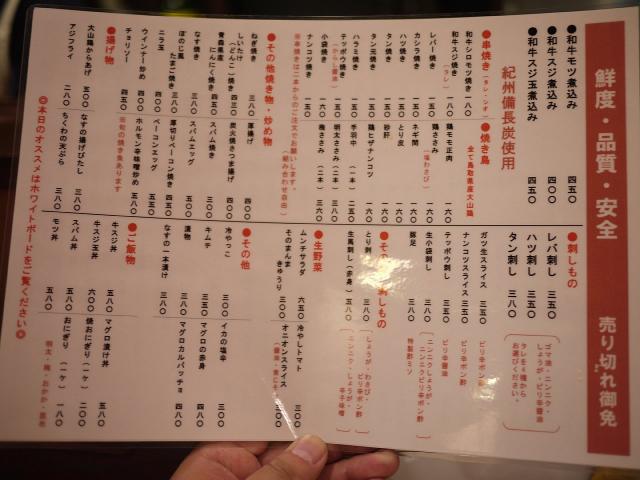 鮮度・品質・安全　売り切れ御免
●和牛モツ煮込み　四五〇
●和牛スジ煮込み　四五〇
●和牛スジ玉煮込み　四五〇
紀州備長炭使用
●串焼き（タレ・シオ）
和牛シロモツ焼き　一八〇
和牛スジ焼き
レバー焼き　一五〇
カシラ焼き　一五〇
ハツ焼き　一五〇
タン焼き　一五〇
タン元焼き　一五〇
ハラミ焼き　一五〇
テッポウ焼き　一五〇
小袋焼き　一五〇
ナンコツ焼き　一五〇
※串焼きは二本からのご注文でお願いします。
（組み合わせ自由）
●焼き鳥　全て鳥取県産大山鶏
鶏モモ正肉　一六〇
鶏ささみ（塩わさび）　一六〇
ネギ間　一六〇
とり皮　一六〇
砂肝　一六〇
鶏ヒザナンコツ　一六〇
手羽中（一本）　二五〇
明太ささみ（二本）　三六〇
梅ささみ（二本）　三六〇
●その他焼き物・炒め物
ねぎ焼き　三八〇
しいたけ（どんこ）焼き　三八〇
青森県産にんにく焼き　四五〇
なす焼き　三八〇
ぽのじ風たまご焼き　三八〇
ニラ玉　四五〇
ウインナー炒め　四〇〇
チョリソー　四五〇
厚揚げ　四〇〇
炭火焼きつま揚げ　四〇〇
スパム焼き　四五〇
スパムエッグ　五〇〇
厚切りベーコン焼き　四五〇
ベーコンエッグ　五五〇
ホルモン辛味噌炒め　五八〇
※旬の焼き魚あります
●揚げ物
大山鶏からあげ　五〇〇
アジフライ　二八〇
なすの揚げびたし　三八〇
ちくわの天ぷら　三八〇
●刺しもの
レバ刺し　三五〇
ハツ刺し　三五〇
タン刺し　三八〇
ゴマ油・ニンニク・しょうが・ピリ辛醤油
タレを4種からお選びください。
ガツ生スライス　三五〇　ピリ辛ポン酢
ナンコツスライス　三五〇　ピリ辛ポン酢
テッポウ刺し　三五〇　ピリ辛醤油
生小袋刺し　三八〇　ニンニクしょうが・ニンニクピリ辛ポン酢
豚足　三八〇　特製酢ミソ
とり刺し　しょうが・わさび・ピリ辛ポン酢
生馬刺し（赤身）　五八〇　ニンニク・しょうが・辛子味噌
●生野菜
ムンチサラダ　六五〇
そのまんまきゅうり　三〇〇
冷やしトマト　三〇〇
オニオンスライス
●その他
冷やっこ　三〇〇
キムチ　三五〇
漬物
なすの一本漬け　三八〇
イカの塩辛　三〇〇
マグロの赤身　四五〇
マグロカルパッチョ　四八〇
●ご飯物
牛スジ丼　五八〇
牛スジ玉丼　六〇〇
スパム丼　五八〇
モツ丼　五八〇
マグロ漬け丼　五八〇
焼おにぎり（一ケ）　二〇〇
おにぎり（一ケ）　一八〇
明太・梅・おかか・昆布
◎本日のオススメはホワイトボードをご覧ください◎